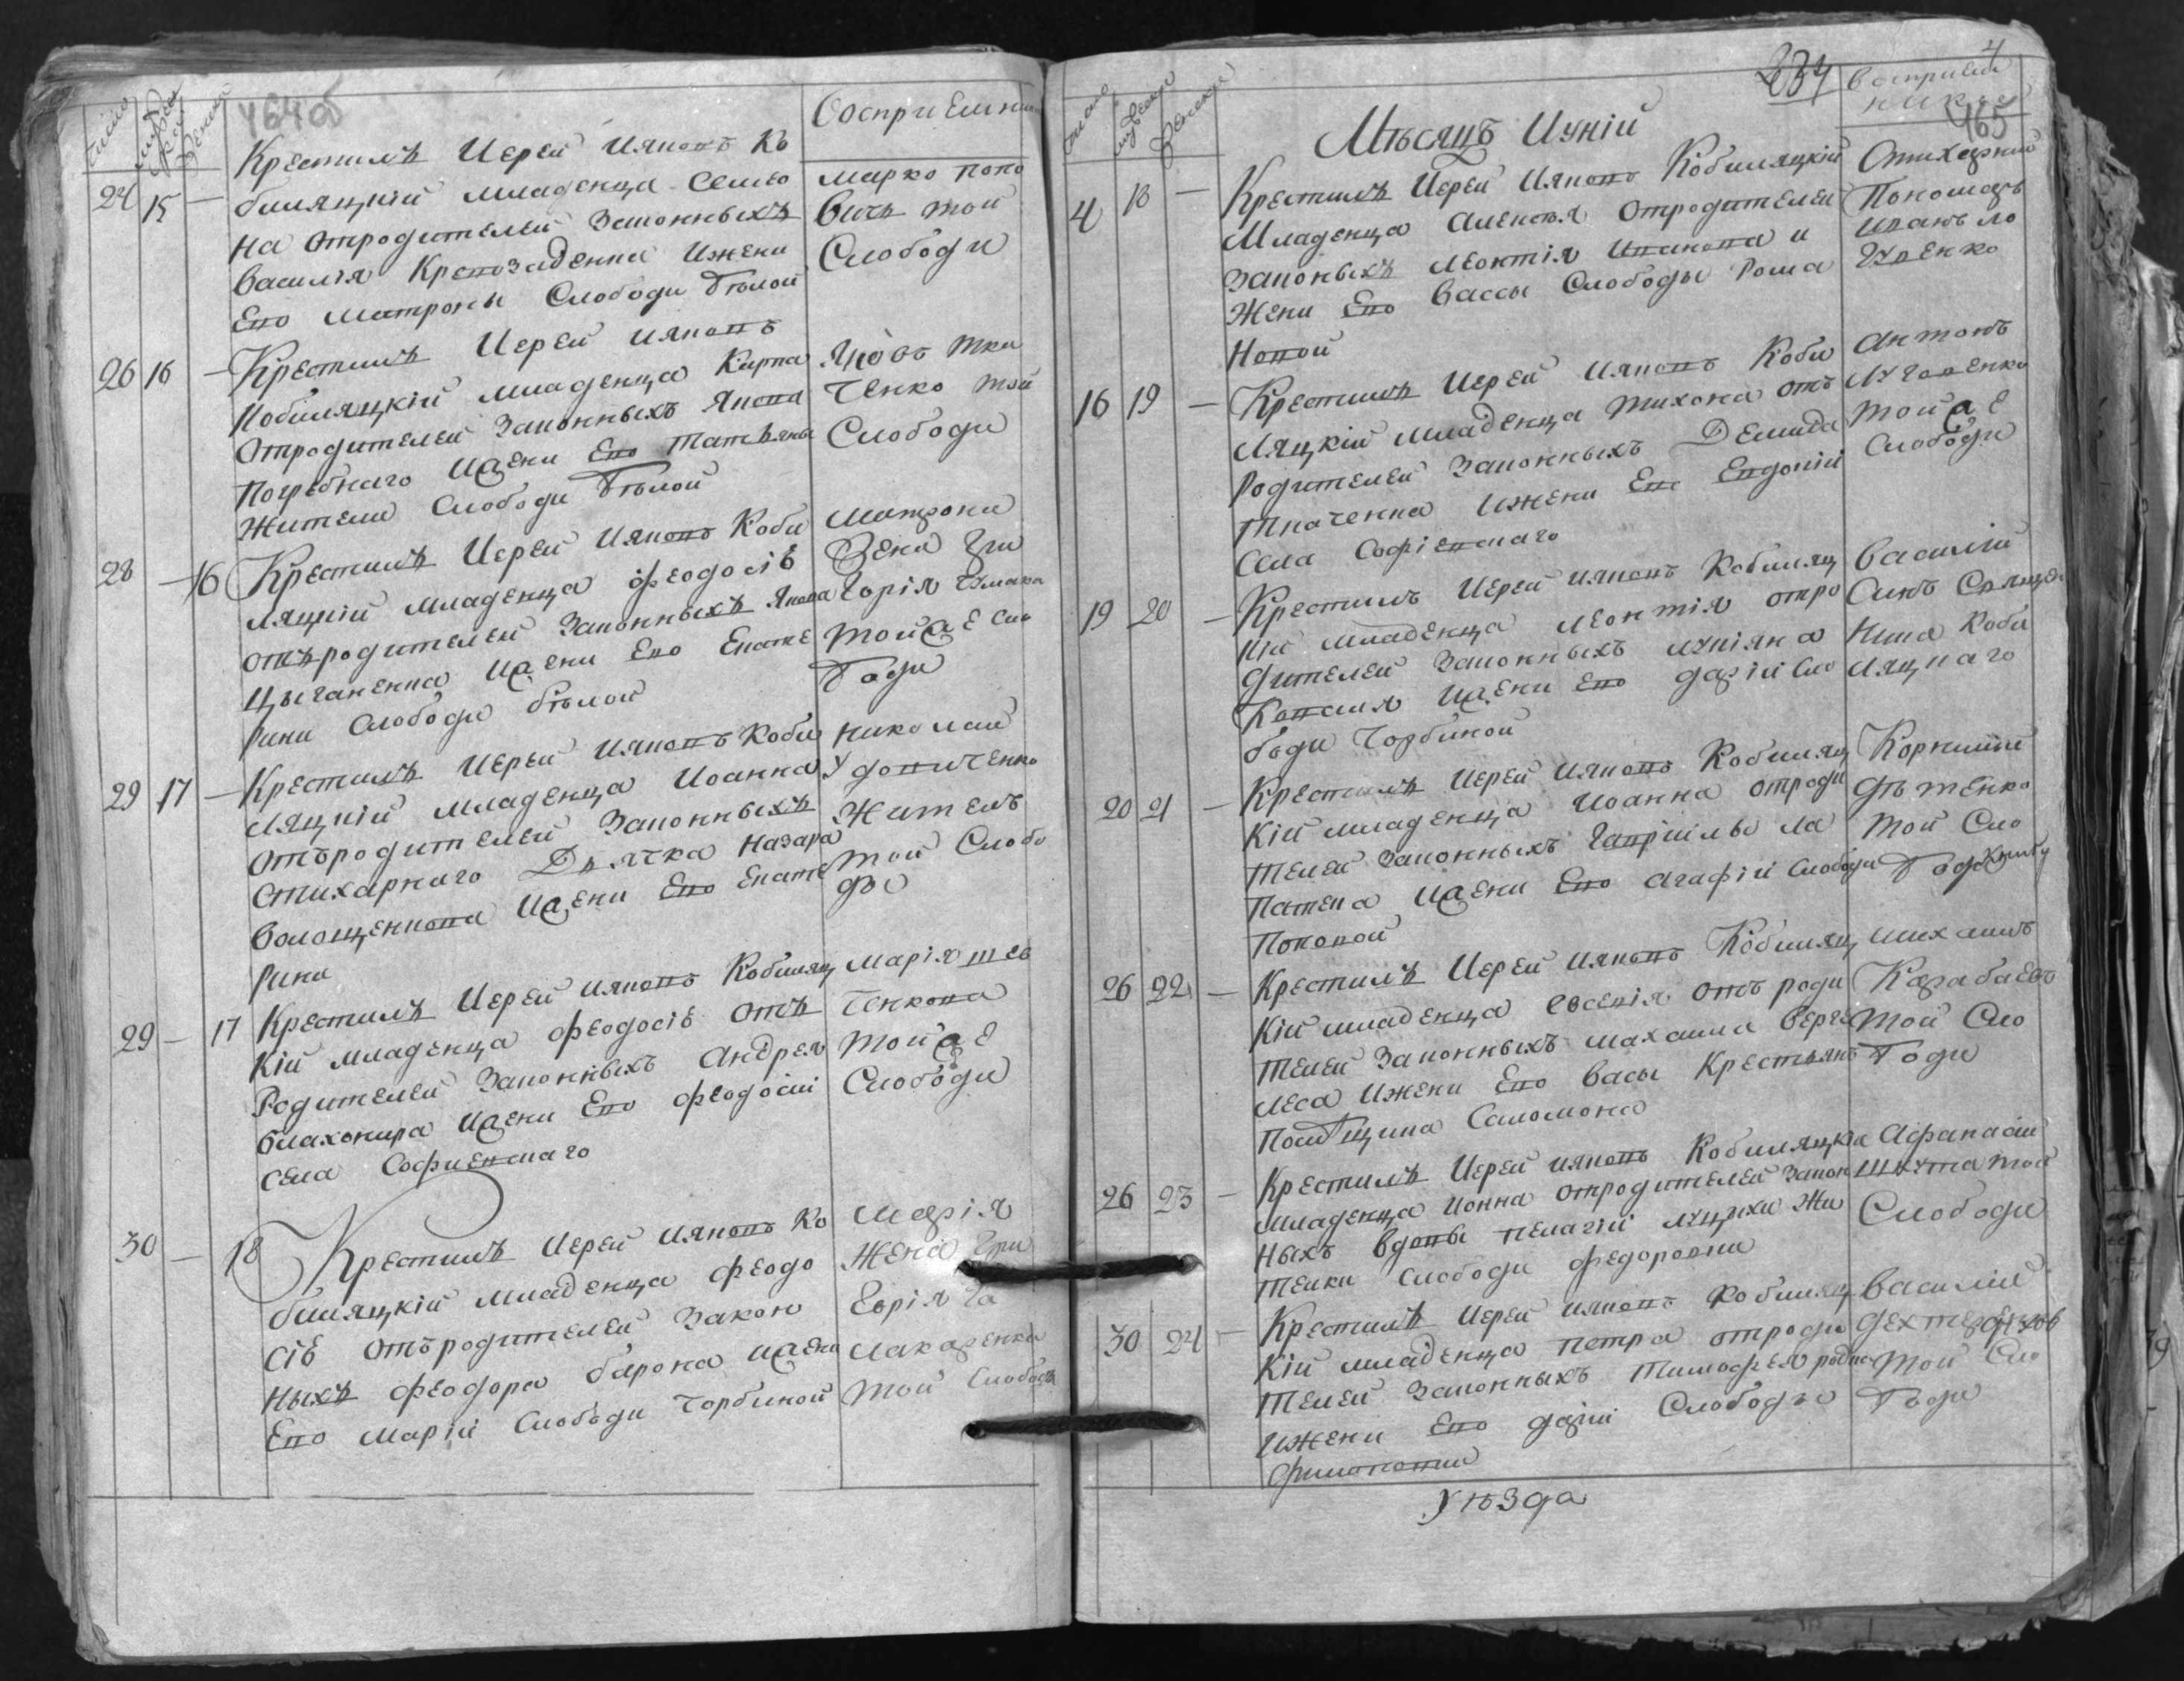 число
мужеска
женска
464об
Восприемни
24 15 — Крестилъ Иерей Ияковъ Ко
биляцкій младенца Семео
на отродителей Законныхъ
василія Кривозаденка Ижени
Его матроны Слободи Бѣлой
марко попо
вичь той
Слободи
26 16 — Крестилъ Иерей Ияковъ
Кобиляцкій младенца Карпа
отродителей Законныхъ Якова
Погребнаго Ижени Его Татьяны
Жители Слободи Бѣлой
Яковъ тка
ченко той
Слободи
28 — 16 Крестилъ Иерей Ияковъ Коби
ляцкій младенца феодосіѣ
отъродителей Законныхъ Якова
Цыганенка Ижени Его Екате
рини Слободи бѣлой
матрона
Жена Гри
горія Чумака
тойже Сло
боди
29 17 — Крестилъ Иерей Ияковъ Коби
ляцкій младенца Иоанна
отъродителей Законныхъ
стихарнаго Дьячка Назара
Волощенкова Ижени Его Екате
рини
Николай
Удовиченко
Житель
той Слобо
ды
29 — 17 Крестилъ Иерей Ияковъ Кобиляц
кій младенца феодосіѣ отъ
Родителей Законныхъ Андрея
Ижени Его феодосіи
села Софиевскаго
Марія шев
ченкова
тойже
Слободи
30 — 18 Крестилъ Иерей Ияковъ Ко
биляцкій младенца феодо
сіѣ отъродителей Закон
ныхъ феодора барона Ижени
Его Маріи Слободи Торбиной
Марія
Жена Гри
горія Га
лакаренка
той Слободи
число
мужеска
Женска
234
4
восприем
никъ
465
Мѣсяцъ Иуній
4 18 — Крестилъ Иерей Ияковъ Кобиляцкій
Младенца Алексѣя отродителей
Законыхъ Леонтія и
Жени Его Вассы Слободы Рома
новой
Стихарний
Пономарь
иванъ ло
16 19 — Крестилъ Иерей Ияковъ Коби
ляцкій младенца тихона отъ
Родителей Законныхъ Демида
Ткаченка Ижени Его Евдокіи
Села Софіевскаго
Антонъ
Лугавенко
тойже
Слободи
19 20 — Крестилъ Иерей Ияковъ Кобиляц
кій младенца леонтія отро
дителей Законныхъ лукіяна
Коваля Ижени Его даріи Сло
боди Торбиной
Василій
Синъ Священ
ника Коби
ляцкаго
20 21 — Крестилъ Иерей Ияковъ Кобиляц
кій младенца Иоанна отроди
телей Законныхъ Гавріилы ла
Ижени Его агафіи Слободи
Поповой
Корнилій
той Сло
боди
26 22 — Крестилъ Иерей Ияковъ Кобиляц
кій младенца Евсевія отъ роди
телей Законныхъ махаила верге
леса Ижени Его васы Крестьянъ
помѣщика Саломона
михаилъ
Карабаевъ
той Сло
боди
26 23 — Крестилъ Иерей Ияковъ Кобиляцки
младенца Ионна отродителей Закон
ныхъ вдовы пелагіи луцихи Жи
телки Слободи федоровки
Афанасій
той
Слободи
30 24 — Крестилъ Иерей Ияковъ Кобиляц
кій младенца петра отроди
телей Законныхъ тимофея
Ижени Его даріи Слободъ
Василій
той Сло
боди
уѣзда